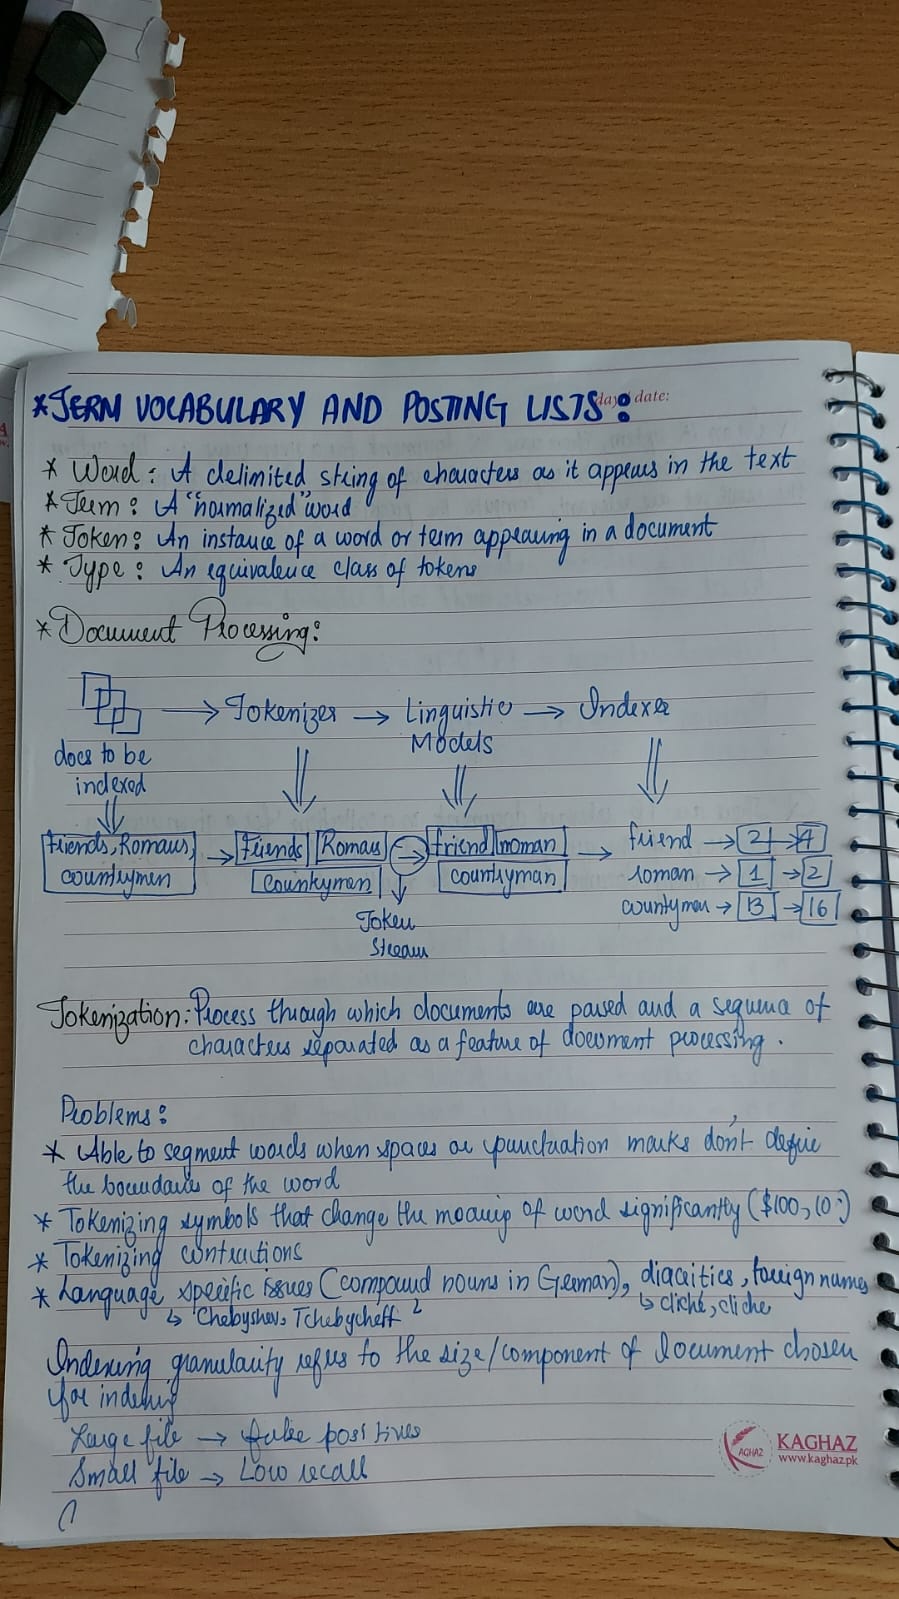 *TERM VOCABULARY AND POSTING LISTS:
day date:
* Word : A delimited string of characters as it appears in the text
* Term : A "normalized" word
* Token : An instance of a word or term appearing in a document
* Type : An equivalence class of tokens
* Document Processing:
→ Tokenizer → Linguistic → Indexer
Models
docs to be
indexed
Friends, Romans, → Friends Romans → friend roman → friend → 2 → 4
countrymen Countrymen countryman roman → 1 → 2
countrymen → 13 → 16
Token
Stream
Tokenization: Process through which documents are parsed and a sequence of
characters separated as a feature of document processing.
Problems:
* Able to segment words when spaces or punctuation marks don't define
the boundaries of the word
* Tokenizing symbols that change the meaning of word significantly ($100,
* Tokenizing contractions
* Language specific issues (compound nouns in German), diacritics, foreign names
↳ Chebyshev, Tchebycheff ↳ cliché, cliche
Indexing granularity refers to the size/component of document chosen
for indexing
Large file → false positives
Small file → Low recall
KAGHAZ
KAGHAZ
www.kaghaz.pk